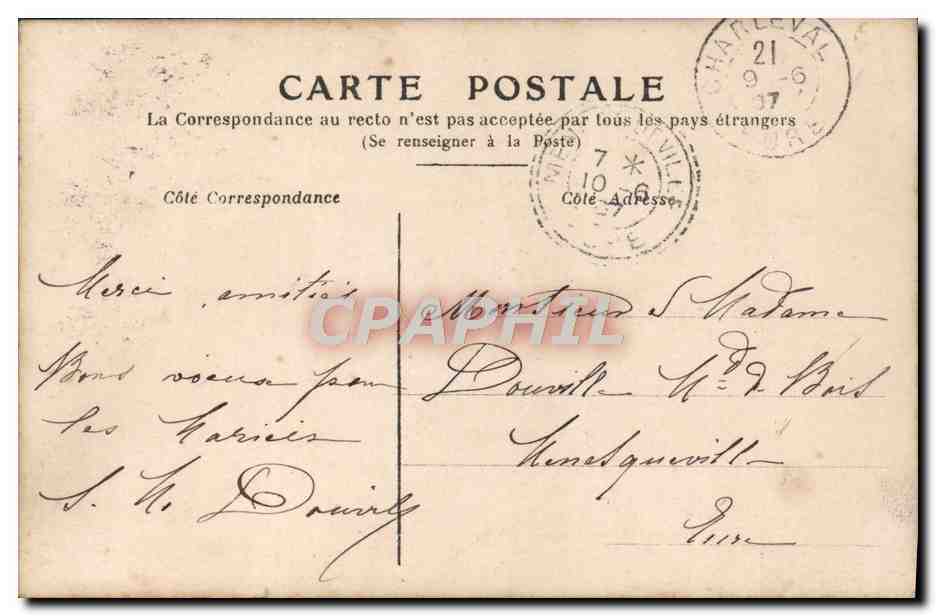 CHARLEVAL
21
9 -6
07
EURE
CARTE POSTALE
La Correspondance au recto n'est pas acceptée par tous les pays étrangers
(Se renseigner à la Poste)
MESNESQUEVILLE
7 *
10 -6
07
EURE
Côté Correspondance
Côté Adresse
Merci, amitiés
Bons voeux pour
les Mariées
S. M. Douville
Monsieur & Madame
Douville Md de Bois
Menesqueville
Eure
CPAPHIL